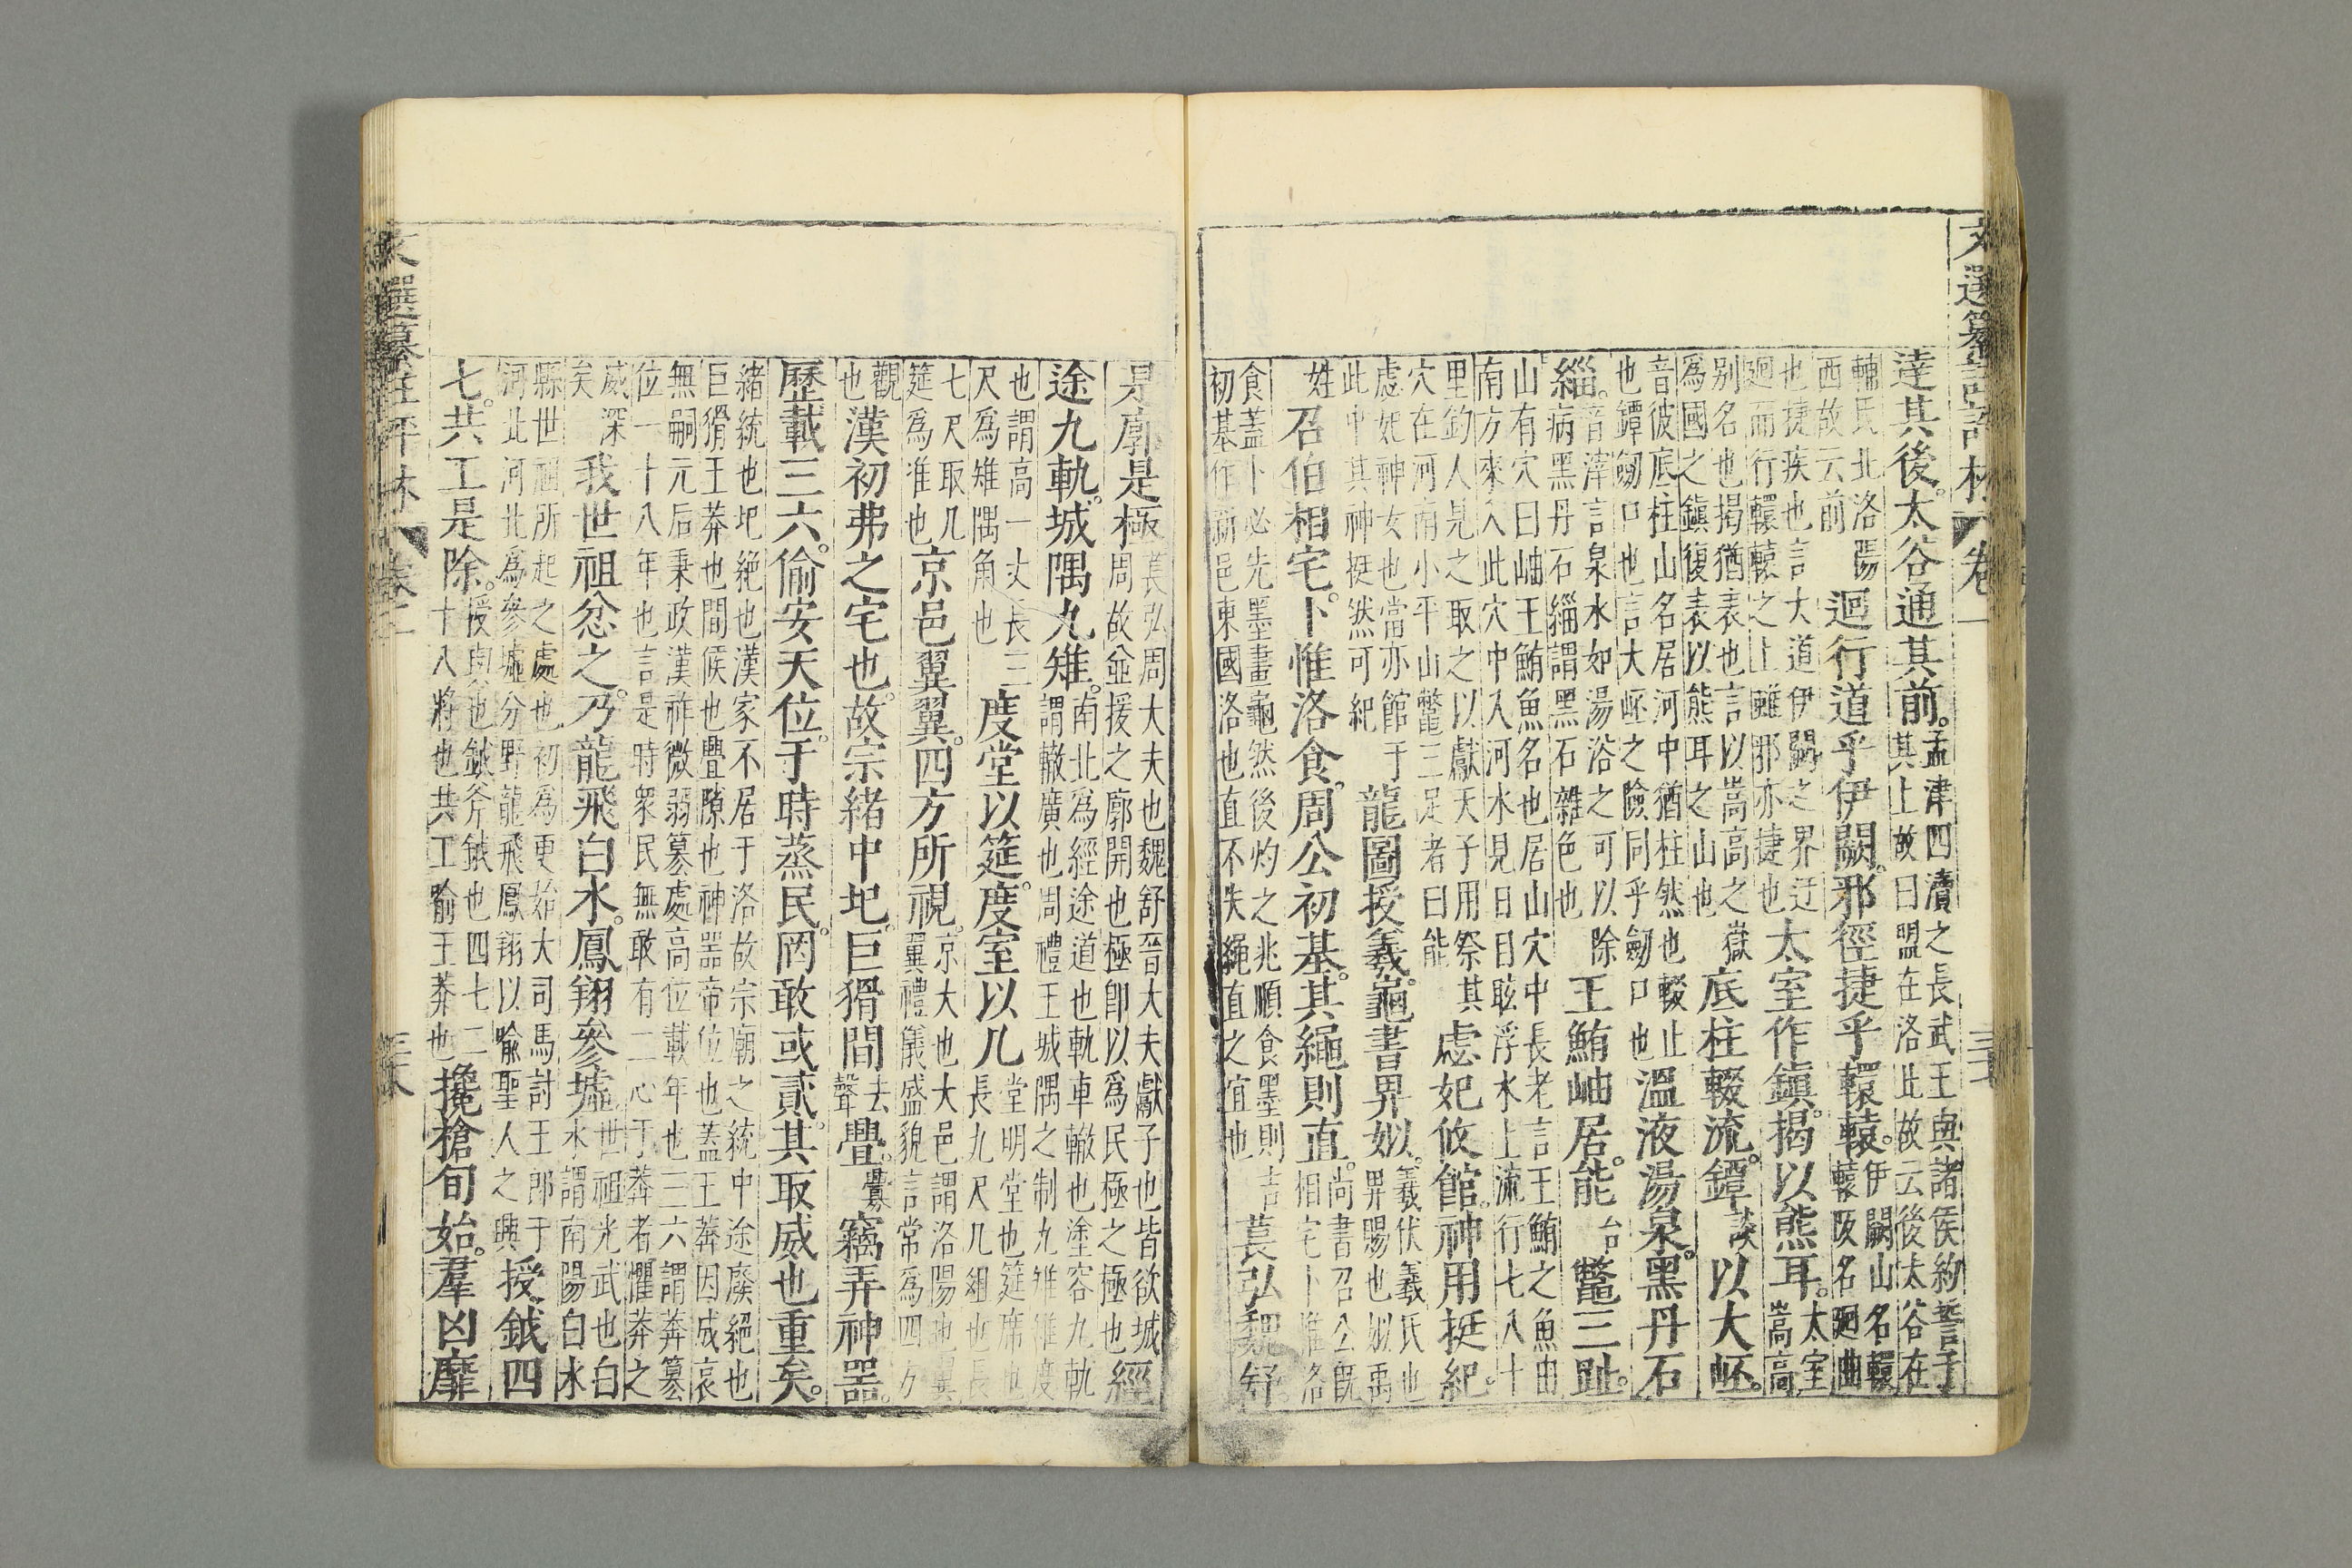 文選纂註評林 卷一
達其後。太谷通其前。孟津四瀆之長武王與諸侯約誓于其上故曰盟在洛北故云後太谷在
轘氏北洛陽西故云前迴行道乎伊闕。邪徑捷乎轘轅。伊闕山名轘轅阪名迴曲
也捷疾也言大道伊闕之界迂迴而行轘轅之上雖邪亦捷也太室作鎮。揭以熊耳。太室嵩高
別名也揭猶表也言以嵩高之嶽為國之鎮復表以熊耳之山也底柱輟流。鐔談以大岯。
音彼底柱山名居河中猶柱然也輟止也鐔劒口也言大岯之險同乎劒口也溫液湯泉。黑丹石
緇。音滓言泉水如湯浴之可以除病黑丹石緇謂黑石雜色也王鮪岫居。能台鼈三趾。
山有穴曰岫王鮪魚名也居山穴中長老言王鮪之魚由南方來入此穴中入河水見日目眩浮水上流行七八十
里釣人見之取之以獻天子用祭其穴在河南小平山鼈三足者曰能虙妃攸館。神用挺紀。
虙妃神女也當亦館于此中其神挺然可紀龍圖授羲。龜書畀姒。羲伏羲氏也畀賜也姒禹
姓召伯相宅。卜惟洛食。周公初基。其繩則直。尚書召公旣相宅卜惟洛
食蓋卜必先墨畫龜然後灼之兆順食墨則吉初基作新邑東國洛也直不失繩直之宜也萇弘魏舒。
是廓是極萇弘周大夫也魏舒晉大夫獻子也皆欲城周故並援之廓開也極卽以爲民極之極也經
途九軌。城隅九雉。南北爲經途道也軌車轍也塗容九軌謂轍廣也周禮王城隅之制九雉雉度
也謂高一丈長三尺爲雉隅角也度堂以筵。度室以几堂明堂也筵席也長九尺几俎也長
七尺取几筵爲准也京邑翼翼。四方所視。京大也大邑謂洛陽也翼翼禮儀盛貌言常爲四方
觀也漢初弗之宅也。故宗緒中圮。巨猾間去聲舋。釁竊弄神器。
歷載三六。偷安天位。于時蒸民。罔敢或貳。其取威也重矣。
緒統也圮絕也漢家不居于洛故宗廟之統中途廢絕也巨猾王莽也間候也舋隙也神噐帝位也蓋王莽因成哀
無嗣元后秉政漢祚微弱篡處高位載年也三六謂莽篡位一十八年也言是時衆民無敢有二心于莽者懼莽之
威深矣我世祖忿之。乃龍飛白水。鳳翔參墟世祖光武也白水謂南陽白水
縣世祖所起之處也初爲更始大司馬討王郎于河北河北爲參墟分野龍飛鳳翔以喻聖人之興授鉞四
七。共工是除。授與也鉞斧鉞也四七二十八將也共工喻王莽也攙槍旬始。羣凶靡
文選纂註評林 卷二 三十八